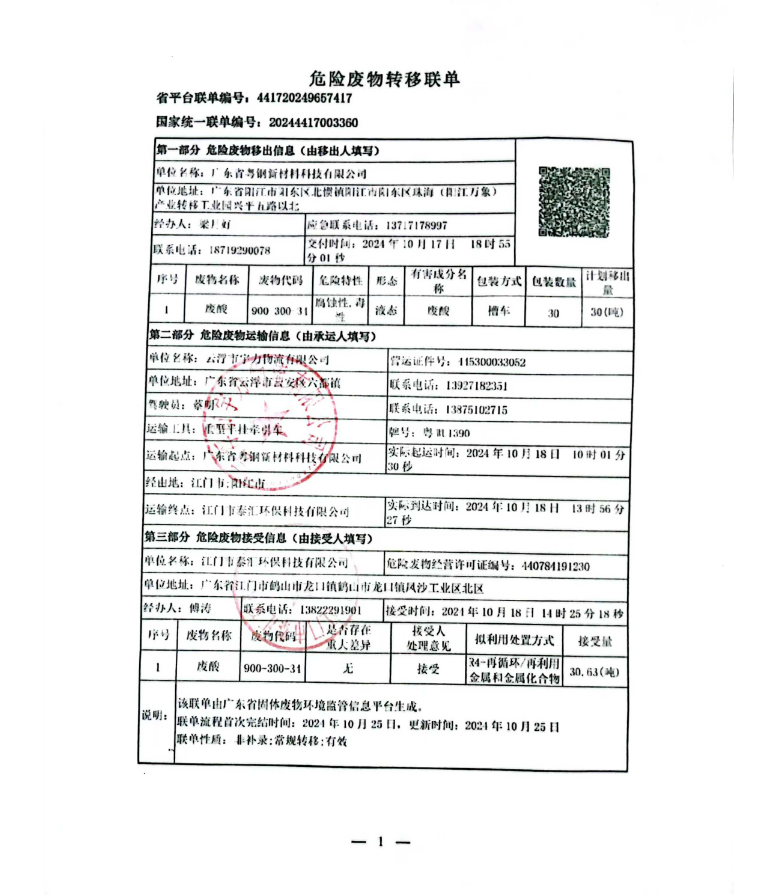 危险废物转移联单
省平台联单编号：441720249657417
国家统一联单编号：20244417003360
第一部分 危险废物移出信息（由移出人填写）
单位名称：广东省粤钢新材料科技有限公司
单位地址：广东省阳江市阳东区北惯镇阳江市阳东区珠海（阳江万象）
产业转移工业园兴平五路以北
经办人：梁月好 应急联系电话：13717178997
联系电话：18719290078 交付时间：2024 年 10 月 17 日 18 时 55
分 01 秒
序号 废物名称 废物代码 危险特性 形态 有害成分名
称 包装方式 包装数量 计划移出
量
1 废酸 900-300-31 腐蚀性,毒
性 液态 废酸 槽车 30 30(吨)
第二部分 危险废物运输信息（由承运人填写）
单位名称：云浮市宇力物流有限公司 营运证件号：445300033052
单位地址：广东省云浮市云安区六都镇 联系电话：13927182351
驾驶员：蔡明 联系电话：13875102715
运输工具：重型半挂牵引车 牌号：粤
运输起点：广东省粤钢新材料科技有限公司 实际起运时间：2024 年 10 月 18 日 10 时 01 分
30 秒
经由地：江门市;阳江市
运输终点：江门市泰汇环保科技有限公司 实际到达时间：2024 年 10 月 18 日 13 时 56 分
27 秒
第三部分 危险废物接受信息（由接受人填写）
单位名称：江门市泰汇环保科技有限公司 危险废物经营许可证编号：440784191230
单位地址：广东省江门市鹤山市龙口镇鹤山市龙口镇凤沙工业区北区
经办人：傅涛 联系电话：13822291901 接受时间：2024 年 10 月 18 日 14 时 25 分 18 秒
序号 废物名称 废物代码 是否存在
重大差异 接受人
处理意见 拟利用处置方式 接受量
1 废酸 900-300-34 无 接受 R4-再循环/再利用
金属和金属化合物 30.63(吨)
说明：
该联单由广东省固体废物环境监管信息平台生成。
联单流程首次完结时间：2024 年 10 月 25 日，更新时间：2024 年 10 月 25 日
联单性质：非补录;常规转移;有效
— 1 —